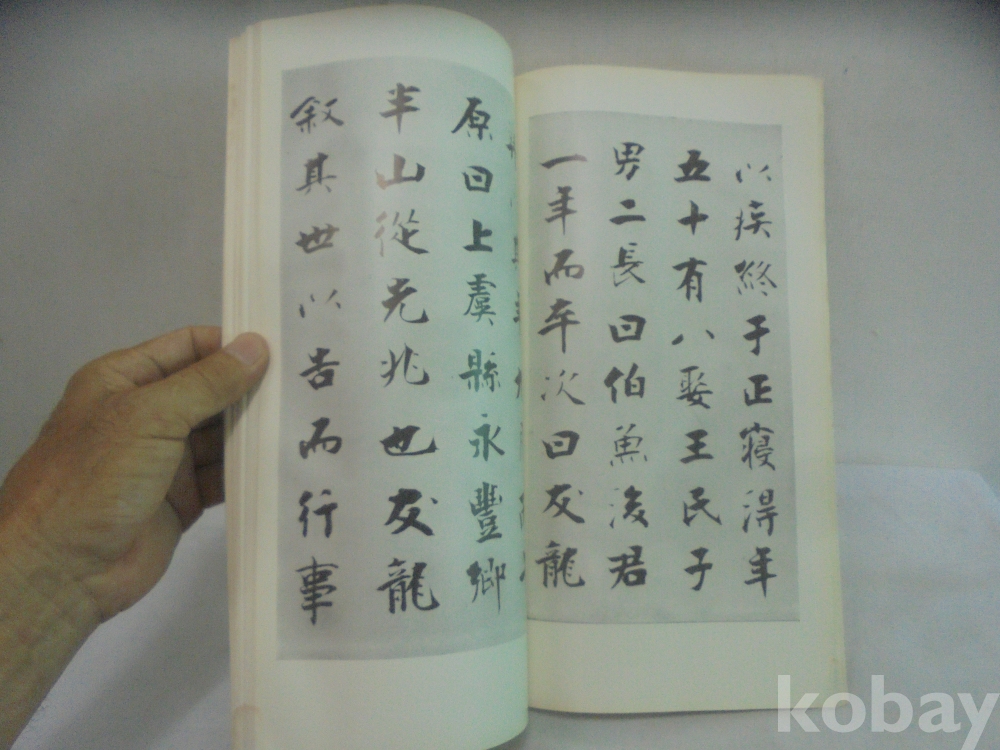 以疾終于正寢淂年
五十有八娶王民子
男二長曰伯魚後君
一年而卒次曰友龍
原曰上虞縣永豐鄉
半山從先兆也友龍
叙其世以告而行事
kobay